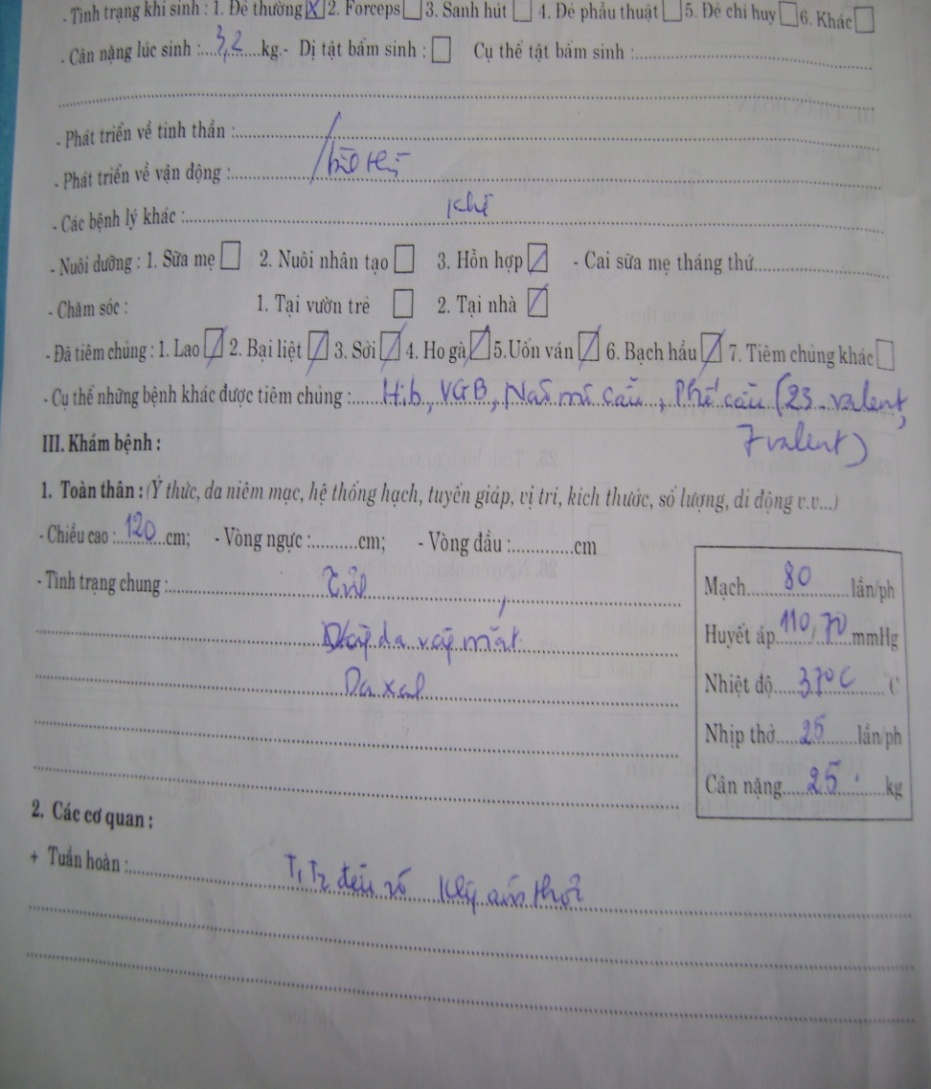 - Tình trạng khi sinh : 1. Đẻ thường X 2. Forceps 3. Sanh hút 4. Đẻ phẫu thuật 5. Đẻ chỉ huy 6. Khác
- Cân nặng lúc sinh : 3,2 kg.- Dị tật bẩm sinh : Cụ thể tật bẩm sinh :
- Phát triển về tinh thần :
- Phát triển về vận động :
- Các bệnh lý khác :
- Nuôi dưỡng : 1. Sữa mẹ 2. Nuôi nhân tạo 3. Hỗn hợp - Cai sữa mẹ tháng thứ
- Chăm sóc : 1. Tại vườn trẻ 2. Tại nhà
- Đã tiêm chủng : 1. Lao 2. Bại liệt 3. Sởi 4. Ho gà 5.Uốn ván 6. Bạch hầu 7. Tiêm chủng khác
- Cụ thể những bệnh khác được tiêm chủng : Hib, VGB, Não mô cầu, Phế cầu (23-valent,
7 valent)
III. Khám bệnh :
1. Toàn thân : (Ý thức, da niêm mạc, hệ thống hạch, tuyến giáp, vị trí, kích thước, số lượng, di động v.v...)
- Chiều cao : 120 cm; - Vòng ngực : cm; - Vòng đầu : cm
- Tình trạng chung : Tỉnh
vàng da vàng mắt
Da xanh
Mạch 80 lần/ph
Huyết áp 110/70 mmHg
Nhiệt độ 37°C C
Nhịp thở 25 lần/ph
Cân nặng 25 kg
2. Các cơ quan :
+ Tuần hoàn : T1 T2 đều rõ Không âm thổi